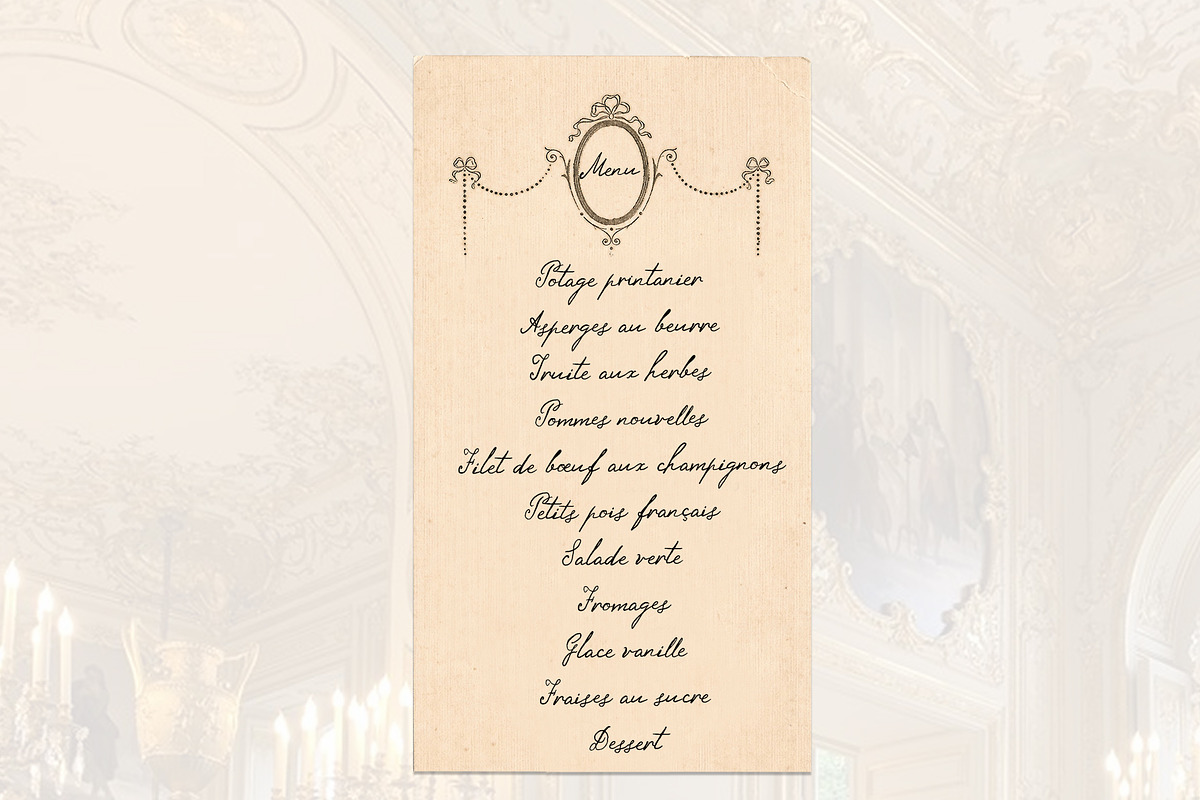 Menu
Potage printanier
Asperges au beurre
Truite aux herbes
Pommes nouvelles
Filet de bœuf aux champignons
Petits pois français
Salade verte
Fromages
Glace vanille
Fraises au sucre
Dessert